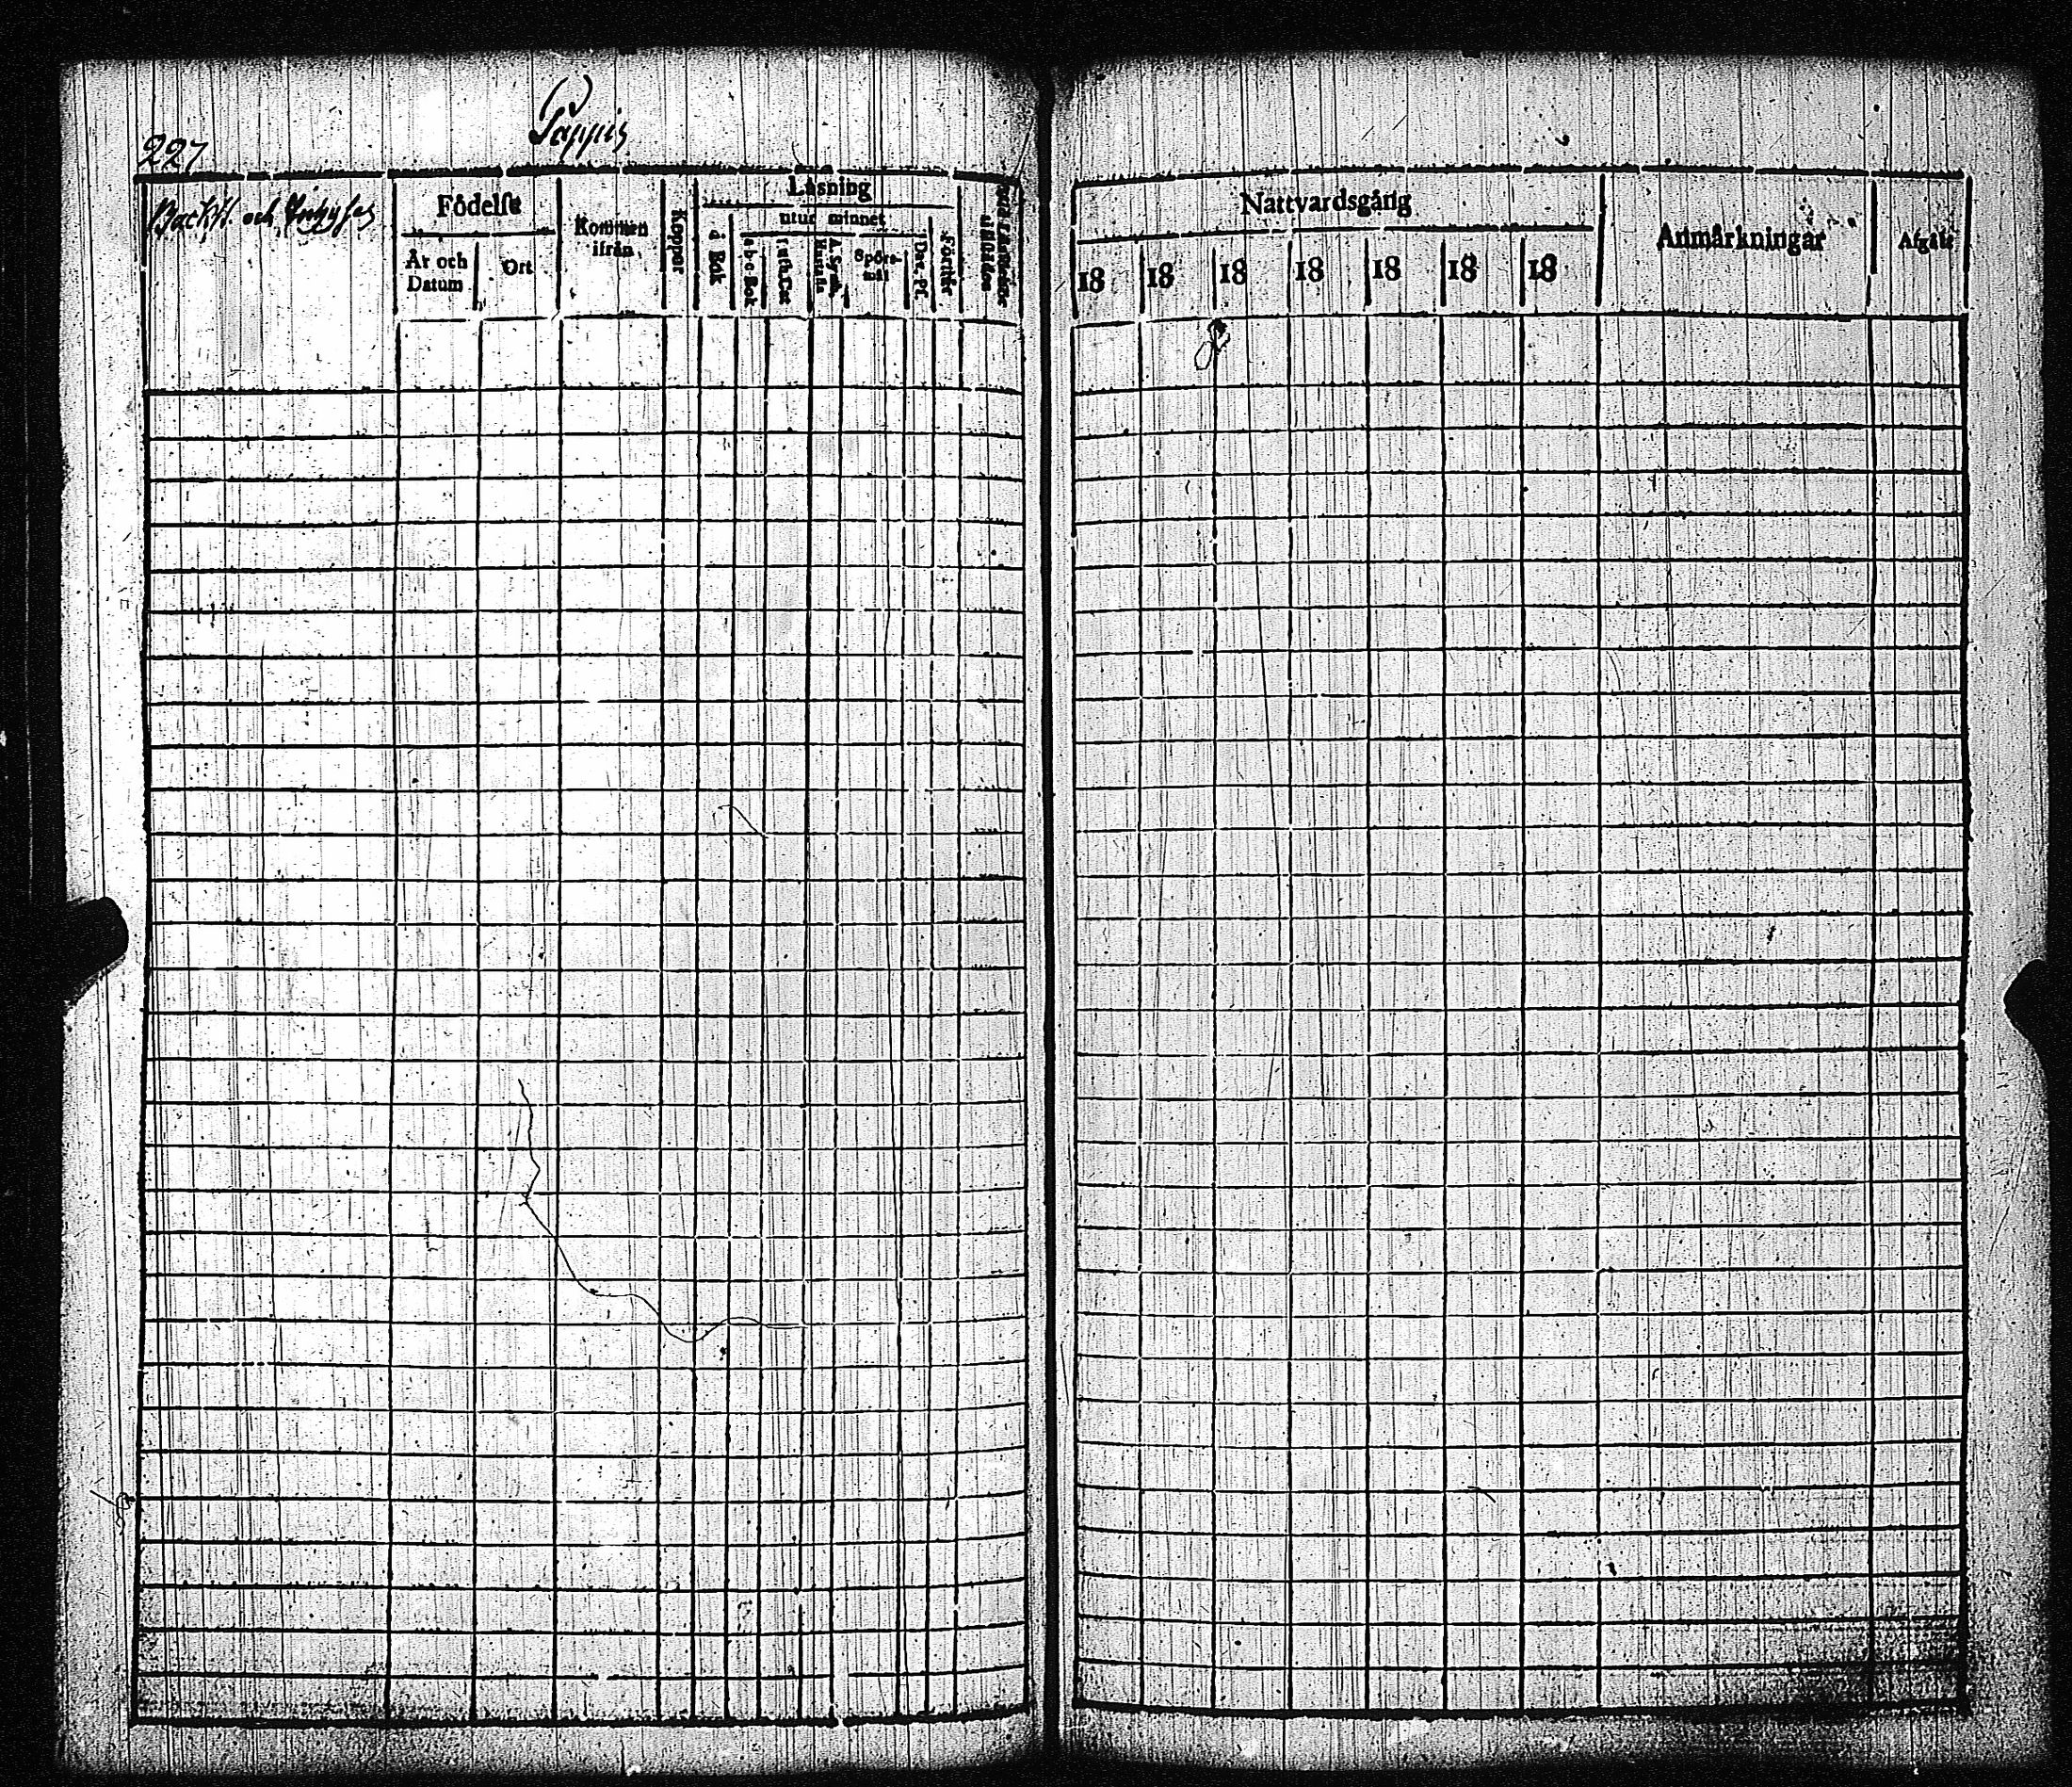 227
Pappis
Backst. och Inhyses
Födelse
År och
Datum
Ort
Kommen
ifrån
Koppor
Läsning
utur minnet
a Bok
a-b-c-Bok
A. Symb.
Hustafla
Spörs-
mål
Dav. Ps.
Förstår
Nattvardsgång
18 18 18 18 18 18 18
Anmärkningar
Afgått